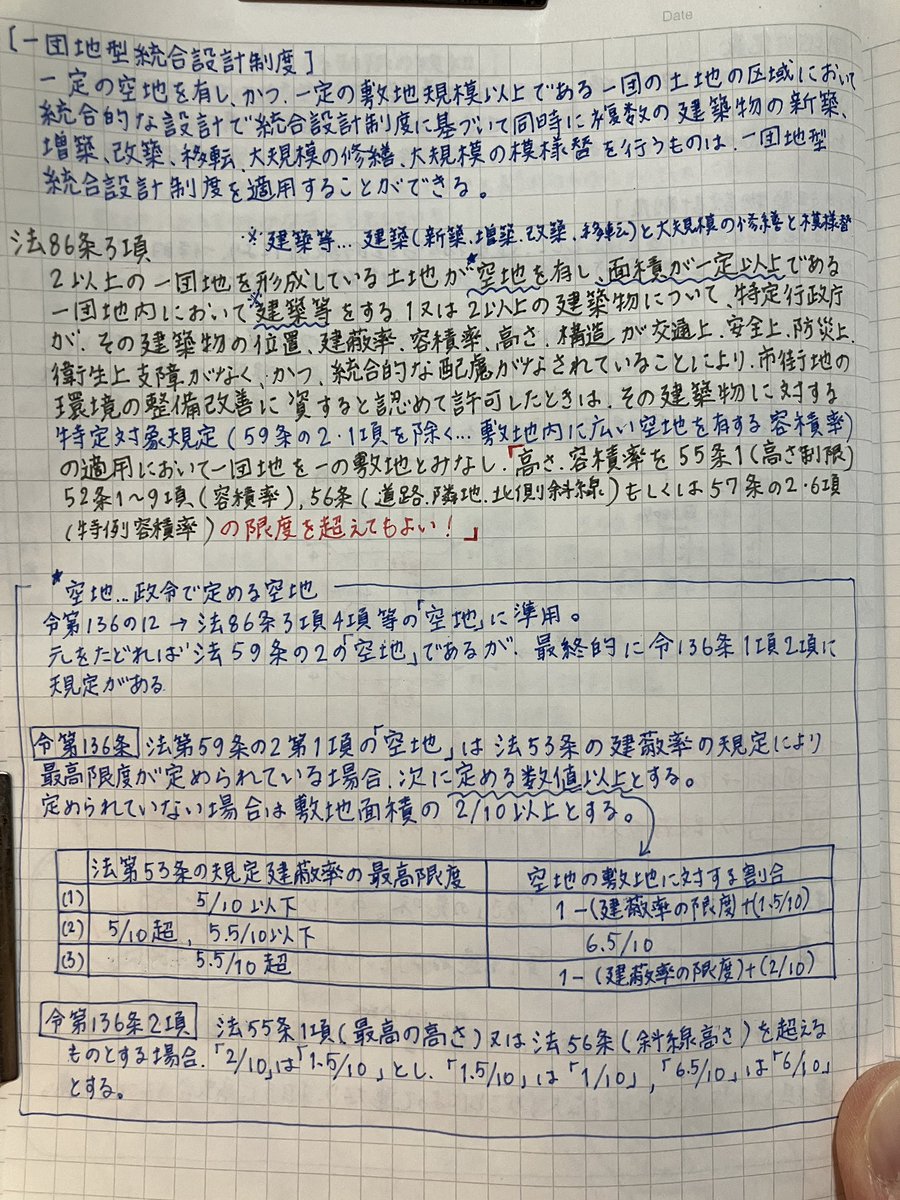 Date
[一団地型統合設計制度]
一定の空地を有し、かつ、一定の敷地規模以上である一団の土地の区域において
統合的な設計で統合設計制度に基づいて同時に複数の建築物の新築、
増築、改築、移転、大規模の修繕、大規模の模様替を行うものは、一団地型
統合設計制度を適用することができる。
※建築等…建築(新築.増築.改築.移転)と大規模の修繕と模様替
法86条3項
2以上の一団地を形成している土地が★空地を有し、面積が一定以上である
一団地内において※建築等をする1又は2以上の建築物について、特定行政庁
が、その建築物の位置、建蔽率、容積率、高さ、構造が交通上.安全上.防災上.
衛生上支障がなく、かつ、統合的な配慮がなされていることにより、市街地の
環境の整備改善に資すると認めて許可したときは、その建築物に対する
特定対象規定(59条の2・1項を除く…敷地内に広い空地を有する容積率)
の適用において一団地を一の敷地とみなし、「高さ.容積率を55条1(高さ制限)
52条1~9項(容積率),56条(道路.隣地.北側斜線)もしくは57条の2・6項
(特例容積率)の限度を超えてもよい!」
★空地…政令で定める空地
令第136の12→法86条3項4項等の「空地」に準用。
元をたどれば法59条の2の「空地」であるが、最終的に令136条1項2項に
規定がある
令第136条 法第59条の2第1項の「空地」は法53条の建蔽率の規定により
最高限度が定められている場合、次に定める数値以上とする。
定められていない場合は敷地面積の2/10以上とする。
法第53条の規定建蔽率の最高限度 空地の敷地に対する割合
(1) 5/10以下 1-(建蔽率の限度)+(1.5/10)
(2) 5/10超、5.5/10以下 6.5/10
(3) 5.5/10超 1-(建蔽率の限度)+(2/10)
令第136条2項 法55条1項(最高の高さ)又は法56条(斜線高さ)を超える
ものとする場合、「2/10」は「1.5/10」とし、「1.5/10」は「1/10」,「6.5/10」は「6/10」
とする。